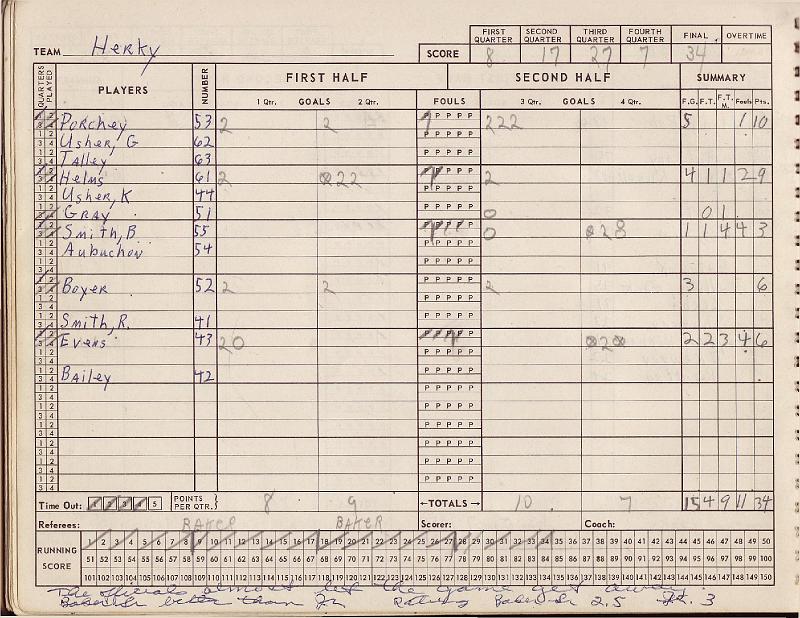 FIRST QUARTER SECOND QUARTER THIRD QUARTER FOURTH QUARTER FINAL OVERTIME
TEAM Herky SCORE 8 17 27 7 34
QUARTERS PLAYED PLAYERS NUMBER FIRST HALF SECOND HALF SUMMARY
1 Qtr. GOALS 2 Qtr. FOULS 3 Qtr. GOALS 4 Qtr. F.G. F.T. F.T.M. Fouls Pts.
Porchey 53 2 2 P P P P P 222 5 1 10
Usher, G 62
Talley 63
Helms 61 2 22 2 4 1 1 2 9
Usher, K 44
Gray 51 0 0 1
Smith, B 55 0 28 1 1 4 4 3
Aubuchon 54
Boyer 52 2 2 2 3 6
Smith, R. 41
Evens 43 20 2 2 2 3 4 6
Bailey 42
Time Out: 1 2 3 4 5 POINTS PER QTR. 8 9 ←TOTALS→ 10 7 15 4 9 11 34
Referees: BAKER BAKER Scorer: Coach:
RUNNING SCORE
1 2 3 4 5 6 7 8 9 10 11 12 13 14 15 16 17 18 19 20 21 22 23 24 25 26 27 28 29 30 31 32 33 34 35 36 37 38 39 40 41 42 43 44 45 46 47 48 49 50
51 52 53 54 55 56 57 58 59 60 61 62 63 64 65 66 67 68 69 70 71 72 73 74 75 76 77 78 79 80 81 82 83 84 85 86 87 88 89 90 91 92 93 94 95 96 97 98 99 100
101 102 103 104 105 106 107 108 109 110 111 112 113 114 115 116 117 118 119 120 121 122 123 124 125 126 127 128 129 130 131 132 133 134 135 136 137 138 139 140 141 142 143 144 145 146 147 148 149 150
The officials almost let the game get away
Baker Sr better than Jr Rating Baker Sr 2.5 Jr. 3